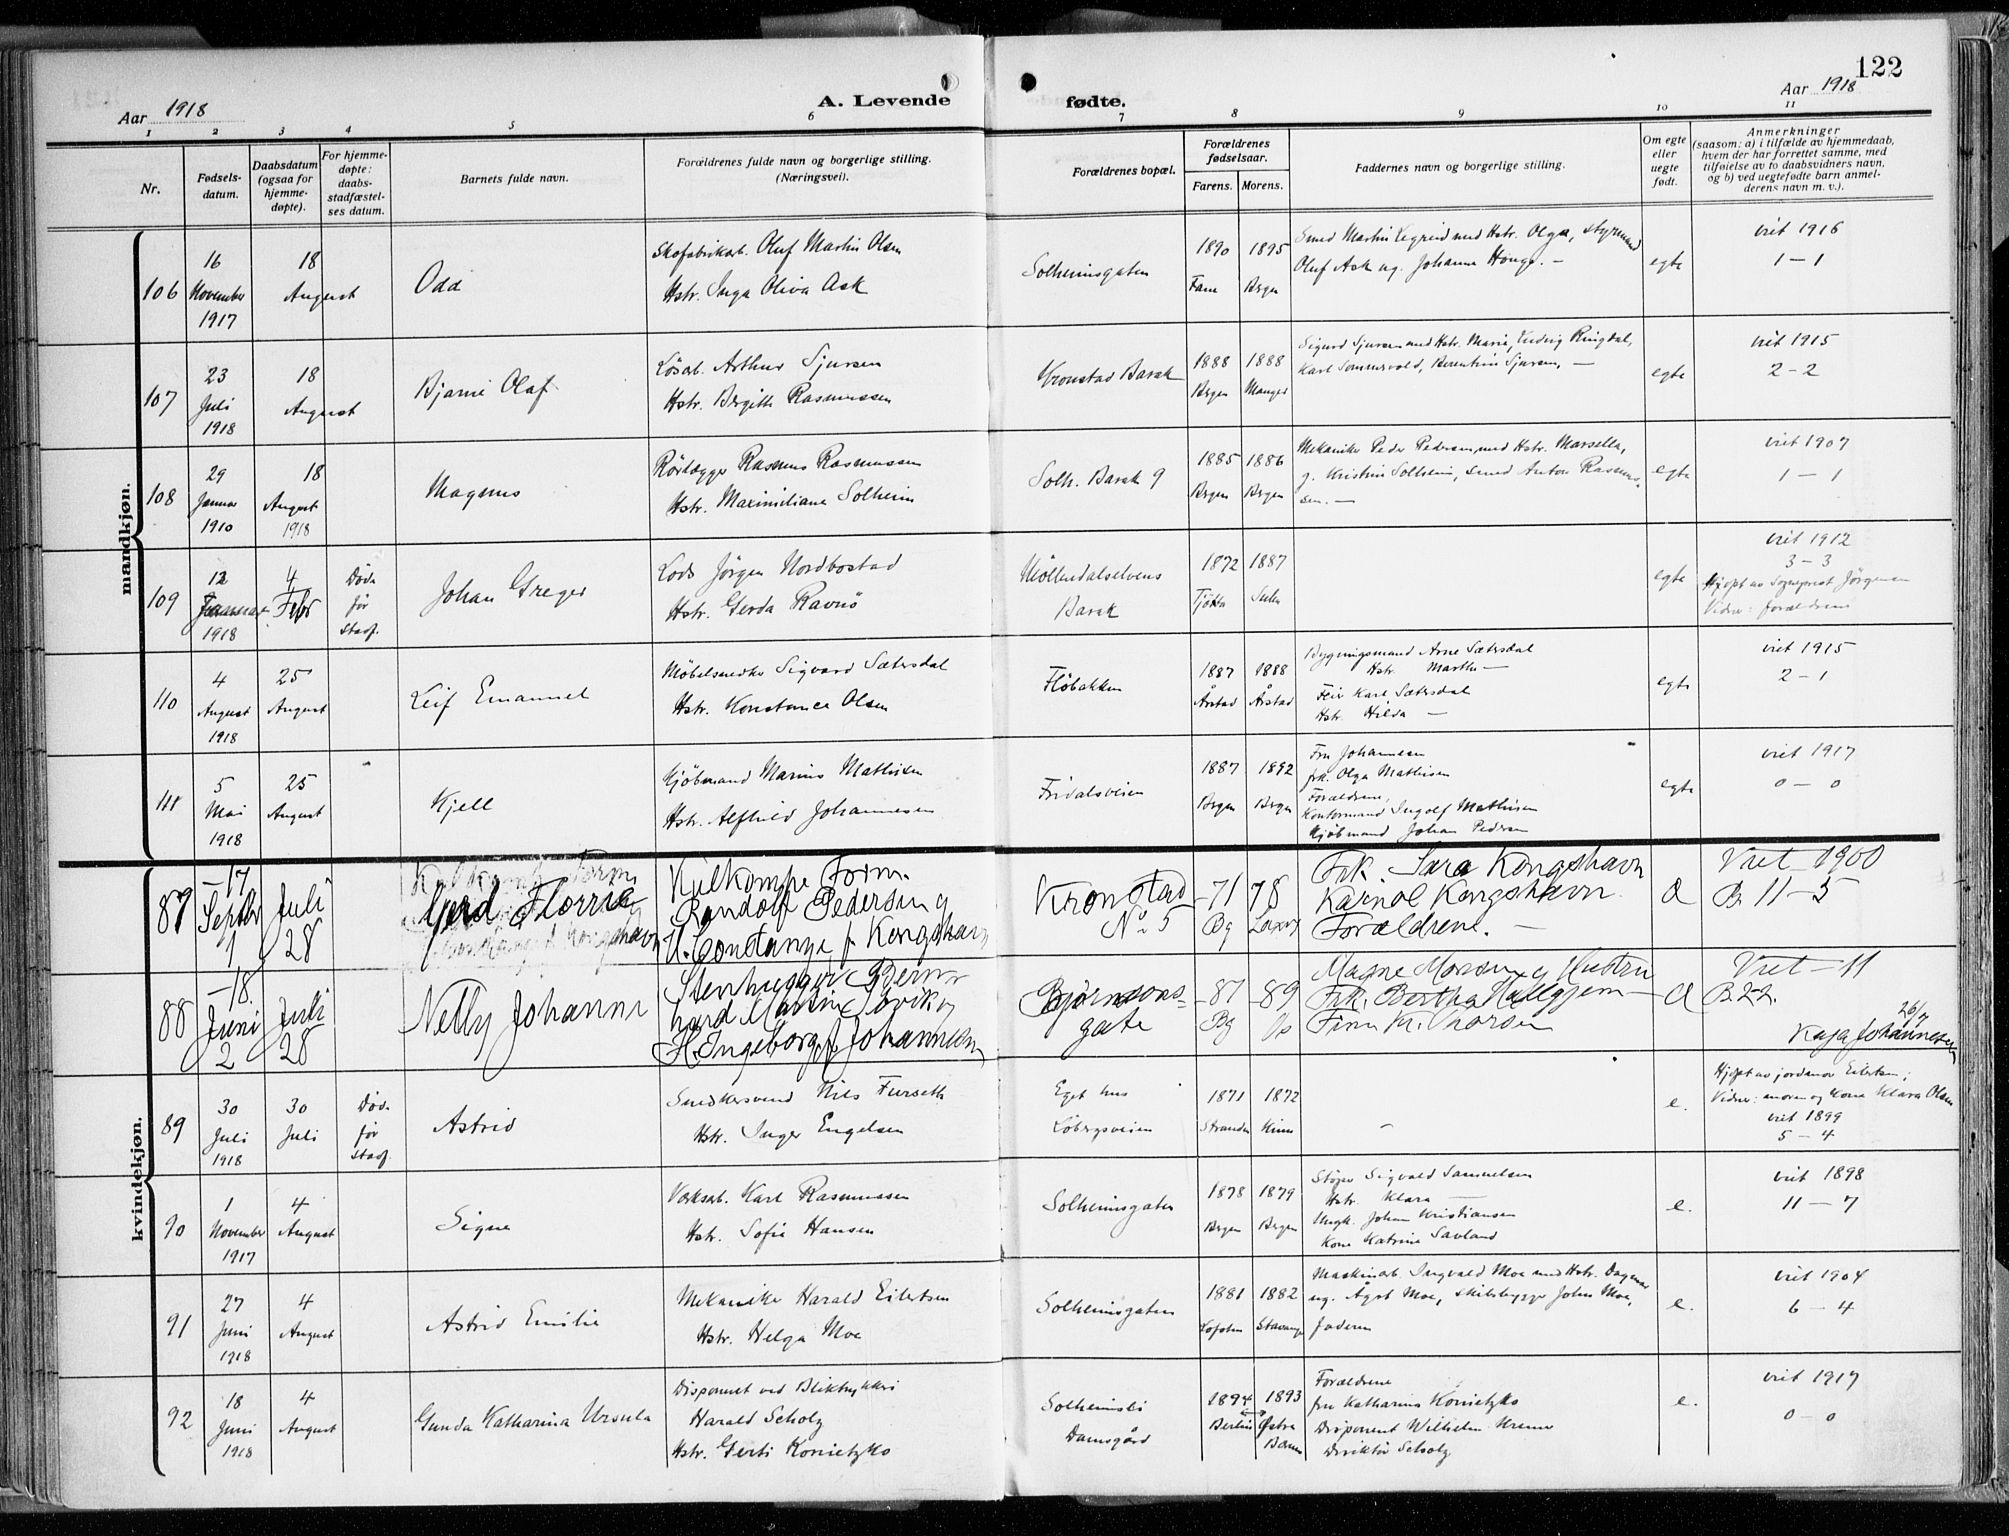 122
Aar 1918
A. Levende fødte.
Aar 1918
1 2 3 4 5 6 7 8 9 10 11
Nr.
Fødsels-
datum.
Daabsdatum
(ogsaa for
hjemme-
døpte).
For hjemme-
døpte:
daabs-
stadfæstel-
ses datum.
Barnets fulde navn.
Forældrenes fulde navn og borgerlige stilling.
(Næringsvei).
Forældrenes bopæl.
Forældrenes
fødselsaar.
Farens. Morens.
Faddernes navn og borgerlige stilling.
Om egte
eller
uegte
født.
Anmerkninger
(saasom: a) i tilfælde av hjemmedaab,
hvem der har forrettet samme, med
tilføielse av to daabsvidners navn,
og b) ved uegtefødte barn anmel-
derens navn m. v.).
mandkjøn.
106
16
November
1917
18
August
Odd
Skofabrikarb. Oluf Martin Olsen
Hstr. Inga Oliva Ask
Solheimsgaten
1890 1895
Fane Bergen
Smed Martin med Hstr. Olga, styrmand
Oluf Ask ug. Johanne Hauge. —
egte
viet 1916
1 — 1
107
23
Juli
1918
18
August
Bjarne Olaf
Løsarb. Arthur Sjursen
Hstr. Bergitte Rasmussen
Kronstad Barak
1888 1888
Bergen Manger
Sigurd Sjursen med Hstr. Marie, Ludvig Ringdal,
Karl Sommervold, Berentine Sjursen, —
egte
viet 1915
2 – 2
108
29
Januar
1910
18
August
1918
Magnus
Rørlægger Rasmus Rasmussen
Hstr. Maximiliane Solheim
Solh. Barak 9
1885 1886
Bergen Bergen
Mekaniker Peder Pedersen med Hstr. Marsella,
g. Kristine Solheim, smed Anton Rasmus-
sen. —
egte
viet 1907
1 — 1
109
12
Januar
1918
4
Febr
Død
før
Stadf.
Johan Greger
Lods Jørgen Nordbostad
Hstr. Gerda Ravnø
Møllendalselvens
Barak
1872 1887
Tjøtta
egte
viet 1912
3 – 3
Hjdpt av Sogneprest Jørgensen
Vidner: forældrene
110
4
August
1918
25
August
Leif Emanuel
Møbelsnedker Sigvard Sætersdal
Hstr. Konstance Olsen
Fløbakken
1887 1888
Årstad Årstad
Bygningsmand Arne Sætersdal
Hstr. Marthe —
Karl Sætersdal
Hstr. Hilda —
egte
viet 1915
2 – 1
111
5
Mai
1918
25
August
Kjell
Kjøbmand Marius Mathisen
Hstr. Alfhild Johannesen
Fridalsveien
1887 1892
Bergen Bergen
Fru Johannesen
frk. Olga Mathisen
Forældrene,
Kontormand Ingolf Mathisen
Kjøbmand Johan Pedersen
egte
viet 1917
0 — 0
kvindekjøn.
87
–17
Septbr
1
Juli
28
Gerd Florrie
Randolf Pedersen g
H. Constanze f. Kongshavn
Kronstad
No 5
–71 78
Bg
Frk. Sara Kongshavn
Karnol Kongshavn.
Forældrene. —
Viet – 1900
B. 11 – 5
88
–18.
Juni
2
Juli
28
Nelly Johanne
Stenhugger Bern-
hard Martin
H. Ingeborg f. Johannesen
Bjørnsons-
gate
–87 –89
Bg
Magne Monsen g Hustru
Frk. Bertha
Finn Kr. Thorsen
Viet – 11
B. 22.
26/7
Kaja Johannesen
89
30
Juli
1918
30
Juli
Død
før
Stadf.
Astrid
Snedkersvend Nils Furseth
Hstr. Inger Engelsen
Eget hus
Løbergsveien
1871 1872
Stranden Kinn
—
e.
Hjdpt av jordmor Eilertsen;
Vidner: moren og kone Klara Olsen
viet 1899
5 – 4
90
1
November
1917
4
August
Signe
Verksarb. Karl Rasmussen
Hstr. Sofie Hansen
Solheimsgaten
1878 1879
Bergen Bergen
Støper Sigvald Samuelsen
Hstr. Klara —
Ungk. Johan Kristiansen
Kone Katrine Savland
e.
viet 1898
11 — 7
91
27
Juni
1918
4
August
Astrid Emilie
Mekaniker Harald Eilertsen
Hstr. Helga Moe
Solheimsgaten
1881 1882
Lofoten Stavanger
Maskinarb. Ingvald Moe med Hstr. Dagmar
ug. Ågot Moe, skibsbygger John Moe,
faderen
e.
viet 1904
6 – 4
92
18
Juni
1918
4
August
Gunda Katharina Ursula
Disponent ved Bliktrykkeri
Harald Scholz
Hstr. Gerti Konietzko
Solheimsli
Damsgård
1894 1893
Berlin Østra
Forældrene
fru Katharina Konietzko
Disponent Wilhelm
Direktør Scholz
e.
viet 1917
0 – 0